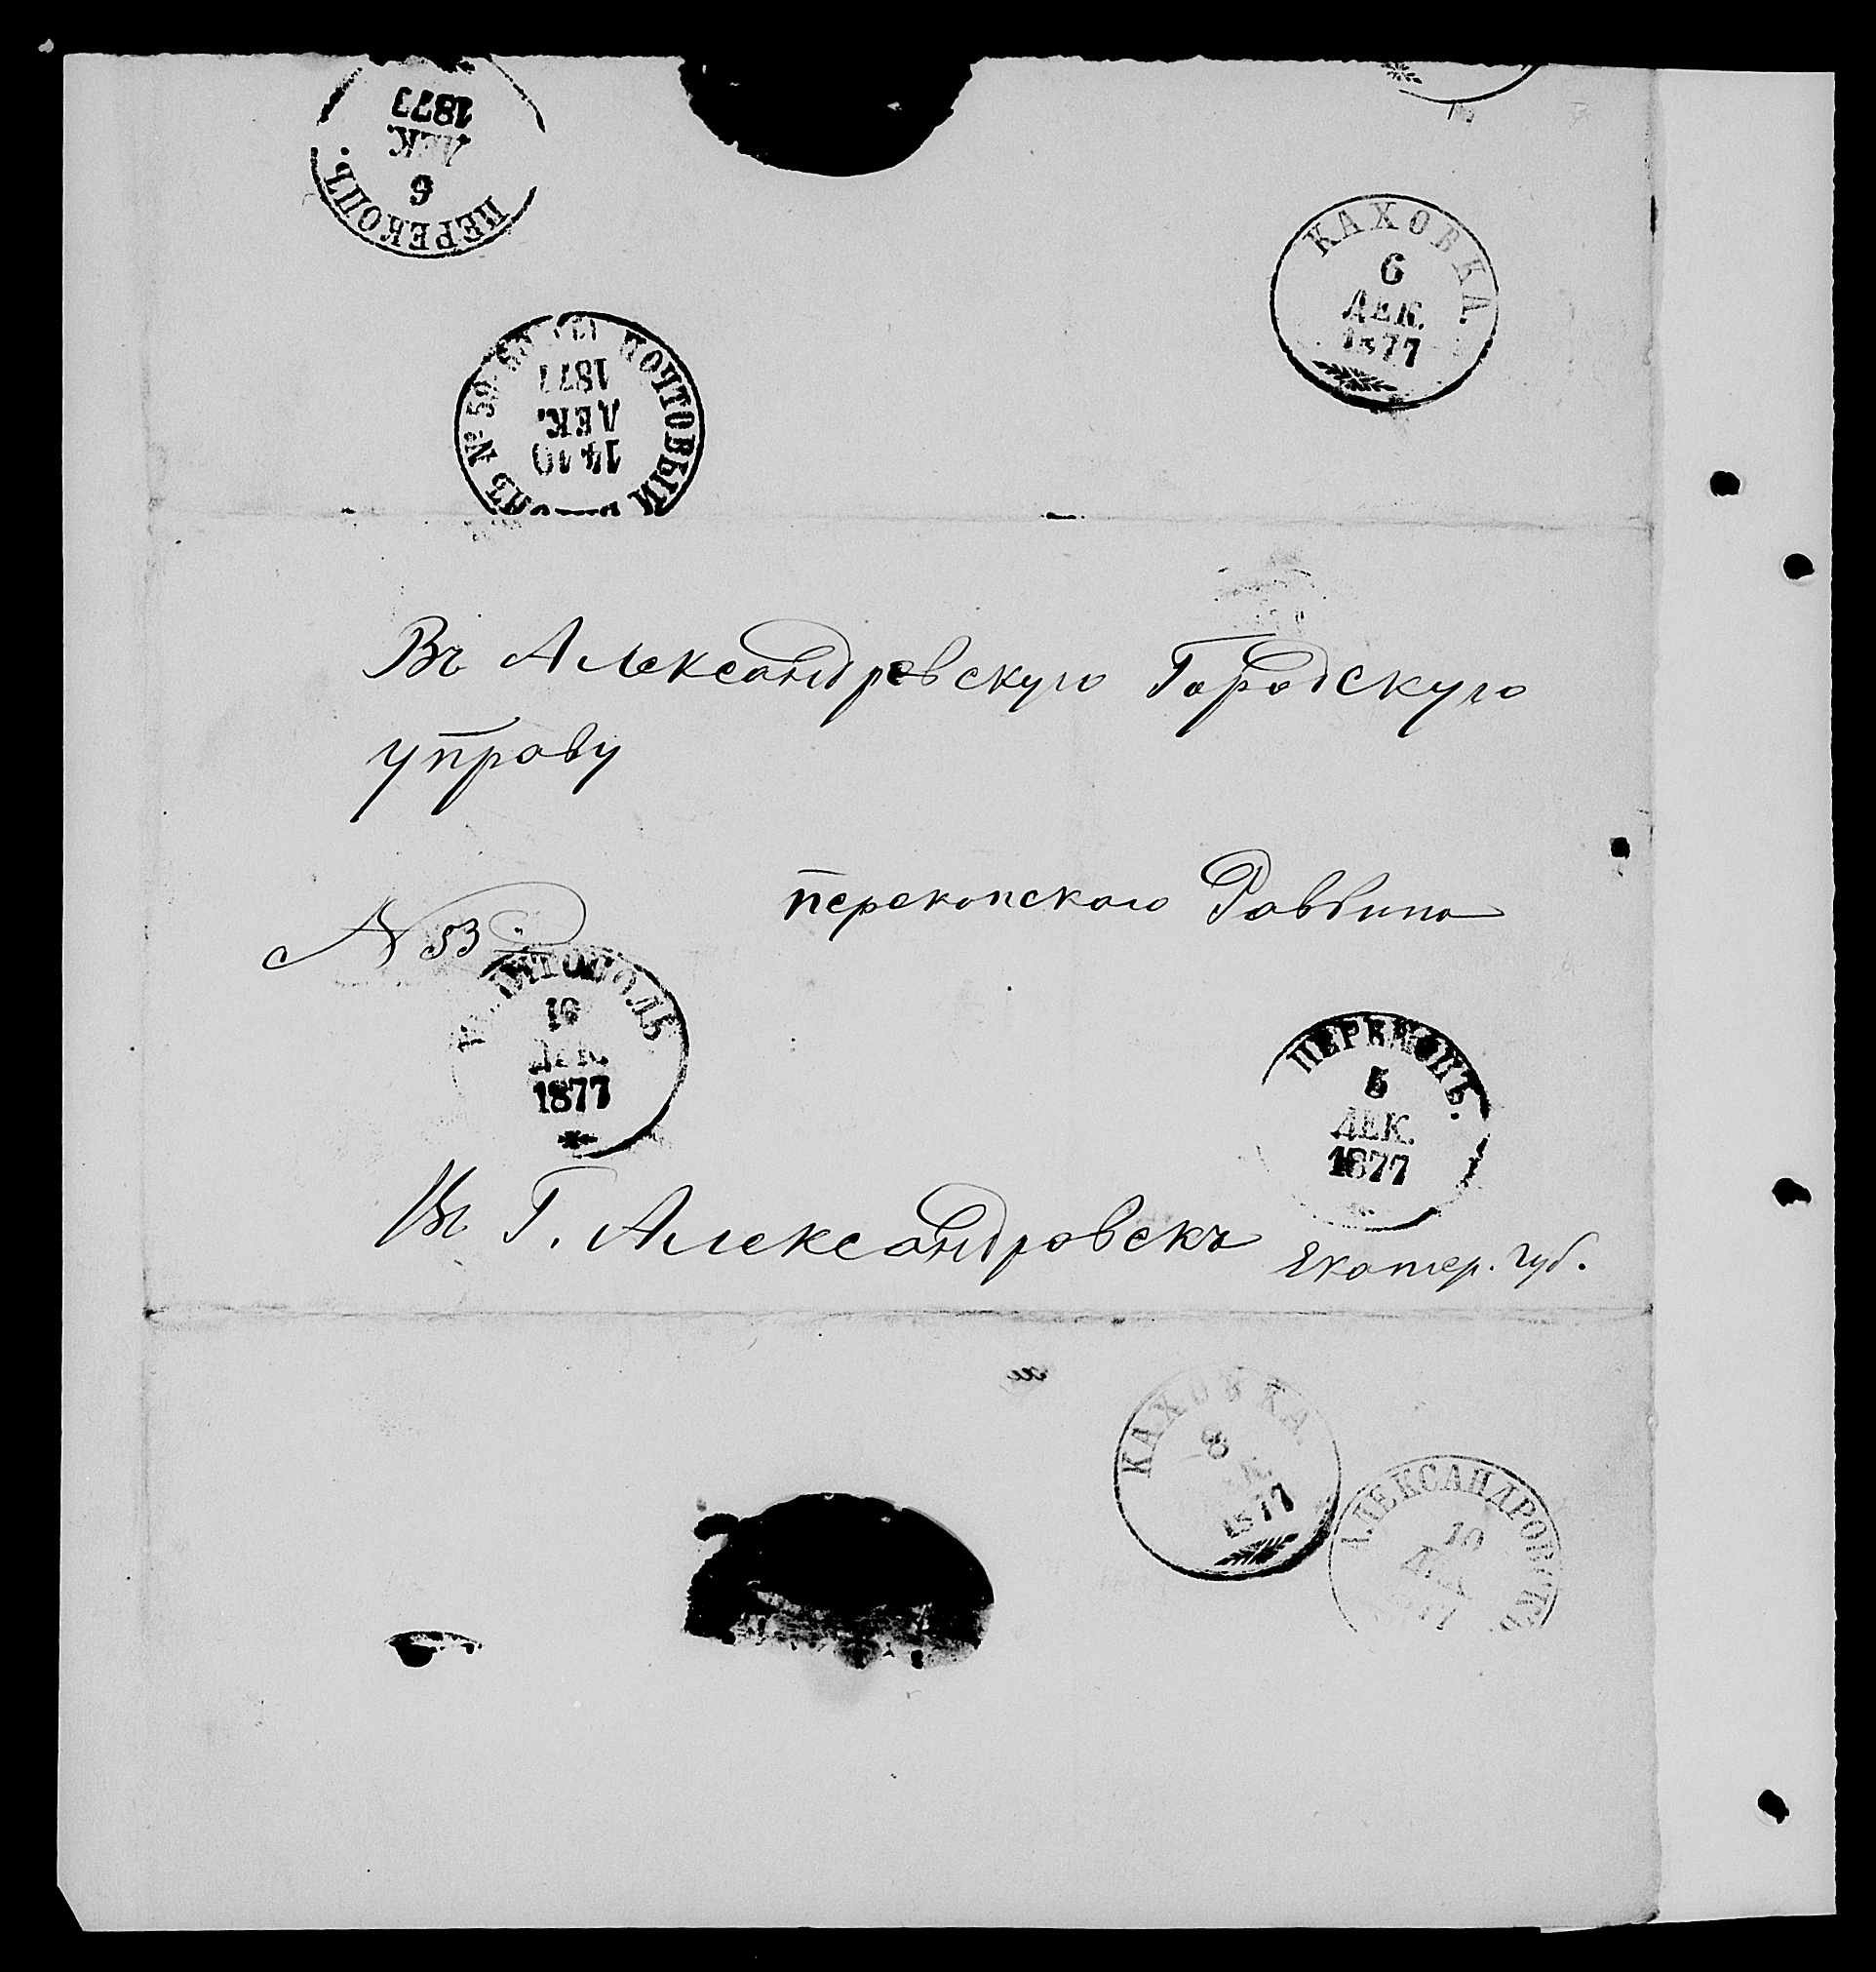 ПЕРЕКОПЪ.
6
ДЕК.
1877
КАХОВКА.
6
ДЕК.
1877
ПОЧТОВЫЙ
№ 59
14 10
ДЕК.
1877
Въ Александровскую Городскую
управу
перекопскаго Раввина
N 53
10
ДЕК.
1877
ПЕРЕКОПЪ.
5
ДЕК.
1877
Въ Г. Александровскъ Екатер. губ.
КАХОВКА
8
1877
АЛЕКСАНДРОВСКЪ
10
ДЕК